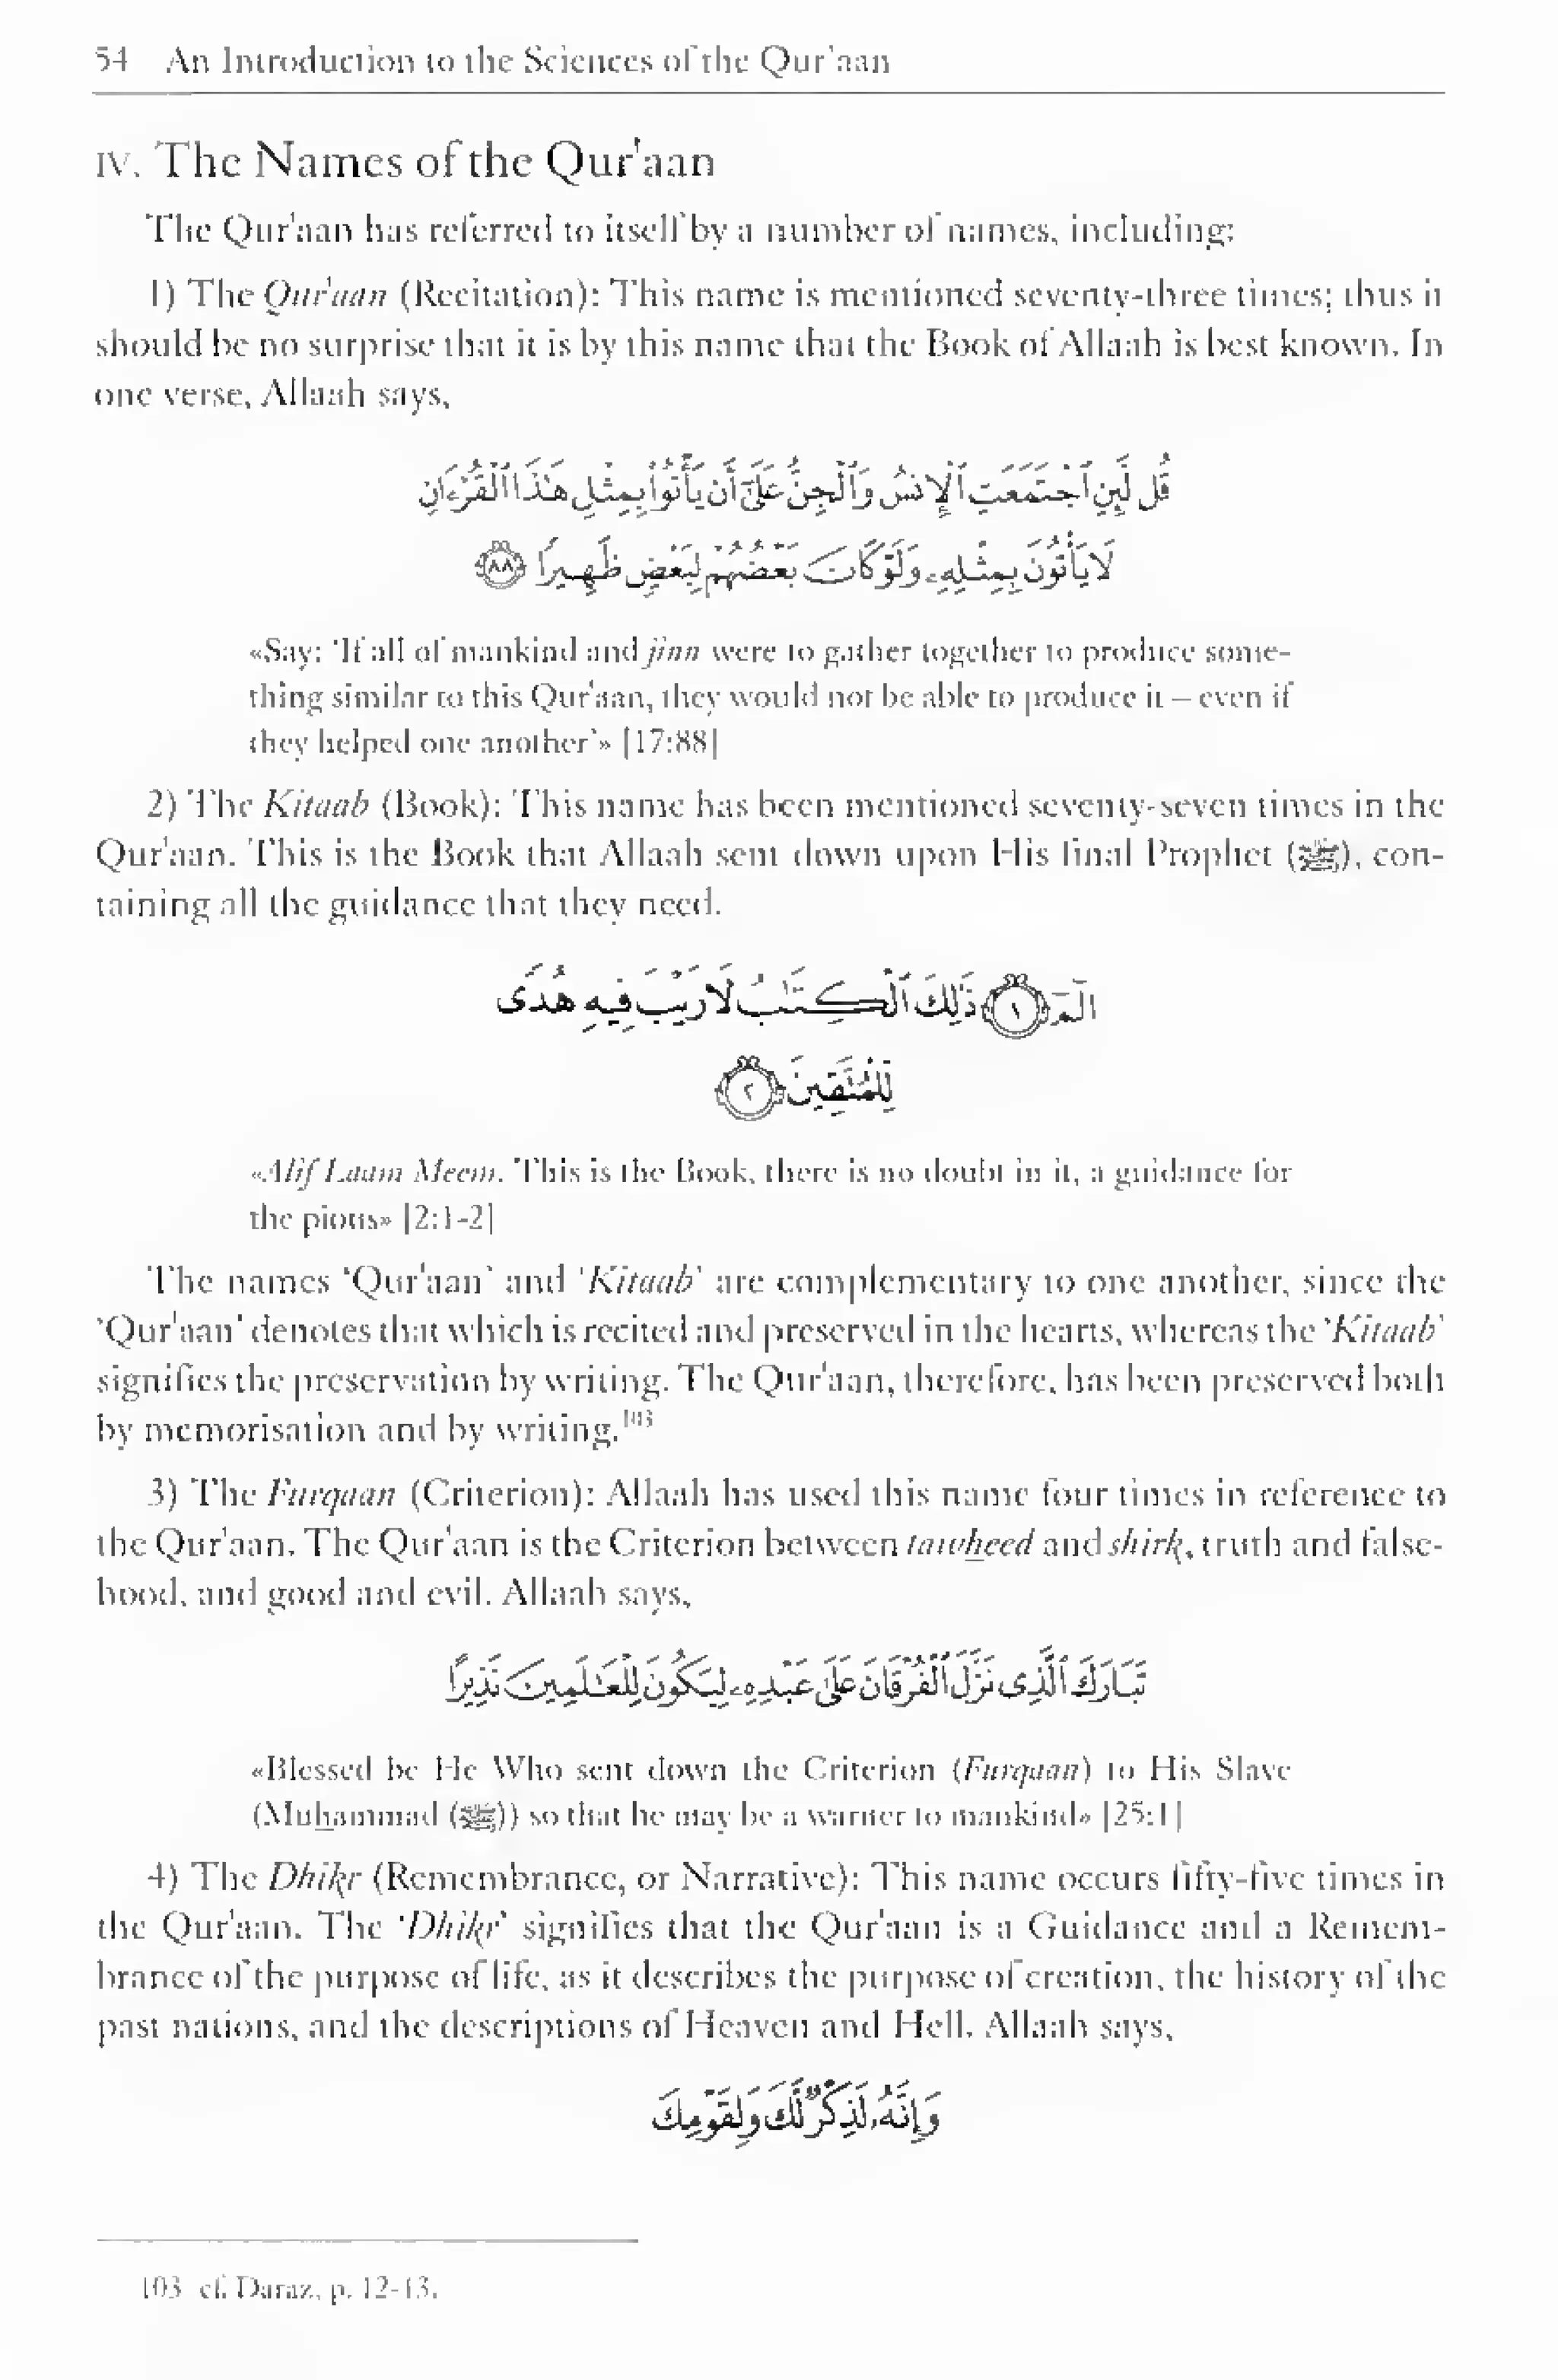 54 An Introduction to the Sciences of the Qur'aan
IV. The Names of the Qur'aan
The Qur'aan has referred to itself by a number of names, including:
1) The Qur'aan (Recitation): This name is mentioned seventy-three times; thus it
should be no surprise that it is by this name that the Book of Allaah is best known. In
one verse, Allaah says,
قُل لَّئِنِ ٱجۡتَمَعَتِ ٱلۡإِنسُ وَٱلۡجِنُّ عَلَىٰٓ أَن يَأۡتُواْ بِمِثۡلِ هَٰذَا ٱلۡقُرۡءَانِ
لَا يَأۡتُونَ بِمِثۡلِهِۦ وَلَوۡ كَانَ بَعۡضُهُمۡ لِبَعۡضٖ ظَهِيرٗا ٨٨
«Say: 'If all of mankind and jinn were to gather together to produce some-
thing similar to this Qur'aan, they would not be able to produce it – even if
they helped one another'» [17:88]
2) The Kitaab (Book): This name has been mentioned seventy-seven times in the
Qur'aan. This is the Book that Allaah sent down upon His final Prophet (ﷺ), con-
taining all the guidance that they need.
الٓمٓ ١ ذَٰلِكَ ٱلۡكِتَٰبُ لَا رَيۡبَ فِيهِ هُدٗى
لِّلۡمُتَّقِينَ ٢
«Alif Laam Meem. This is the Book, there is no doubt in it, a guidance for
the pious» [2:1-2]
The names 'Qur'aan' and 'Kitaab' are complementary to one another, since the
'Qur'aan' denotes that which is recited and preserved in the hearts, whereas the 'Kitaab'
signifies the preservation by writing. The Qur'aan, therefore, has been preserved both
by memorisation and by writing.103
3) The Furqaan (Criterion): Allaah has used this name four times in reference to
the Qur'aan. The Qur'aan is the Criterion between tawheed and shirk, truth and false-
hood, and good and evil. Allaah says,
تَبَارَكَ ٱلَّذِي نَزَّلَ ٱلۡفُرۡقَانَ عَلَىٰ عَبۡدِهِۦ لِيَكُونَ لِلۡعَٰلَمِينَ نَذِيرًا
«Blessed be He Who sent down the Criterion (Furqaan) to His Slave
(Muhammad (ﷺ)) so that he may be a warner to mankind» [25:1]
4) The Dhikr (Remembrance, or Narrative): This name occurs fifty-five times in
the Qur'aan. The 'Dhikr' signifies that the Qur'aan is a Guidance and a Remem-
brance of the purpose of life, as it describes the purpose of creation, the history of the
past nations, and the descriptions of Heaven and Hell. Allaah says,
وَإِنَّهُۥ لَذِكۡرٞ لَّكَ وَلِقَوۡمِكَ
103 cf. Daraz, p. 12-13.